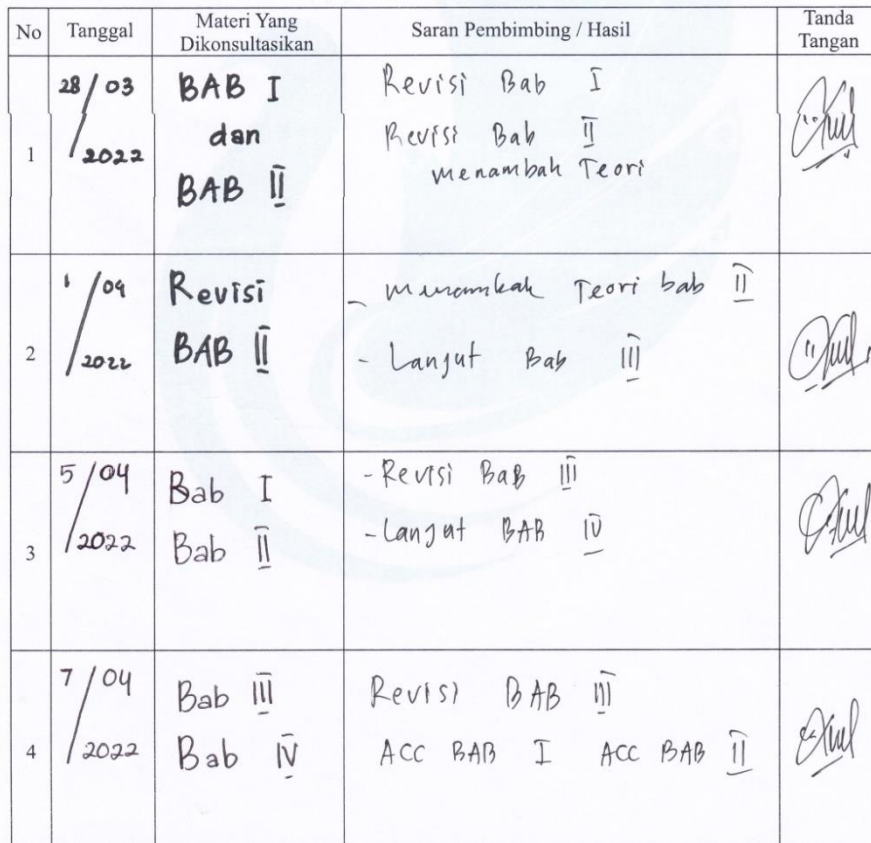 No Tanggal Materi Yang Dikonsultasikan Saran Pembimbing / Hasil Tanda Tangan
1
28/03/2022
BAB I
dan
BAB II
Revisi Bab I
Revisi Bab II
menambah Teori
2
1/04/2022
Revisi
BAB II
- menambah Teori bab II
- Lanjut Bab III
3
5/04/2022
Bab I
Bab II
- Revisi Bab III
- Lanjut BAB IV
4
7/04/2022
Bab III
Bab IV
Revisi BAB III
ACC BAB I ACC BAB II